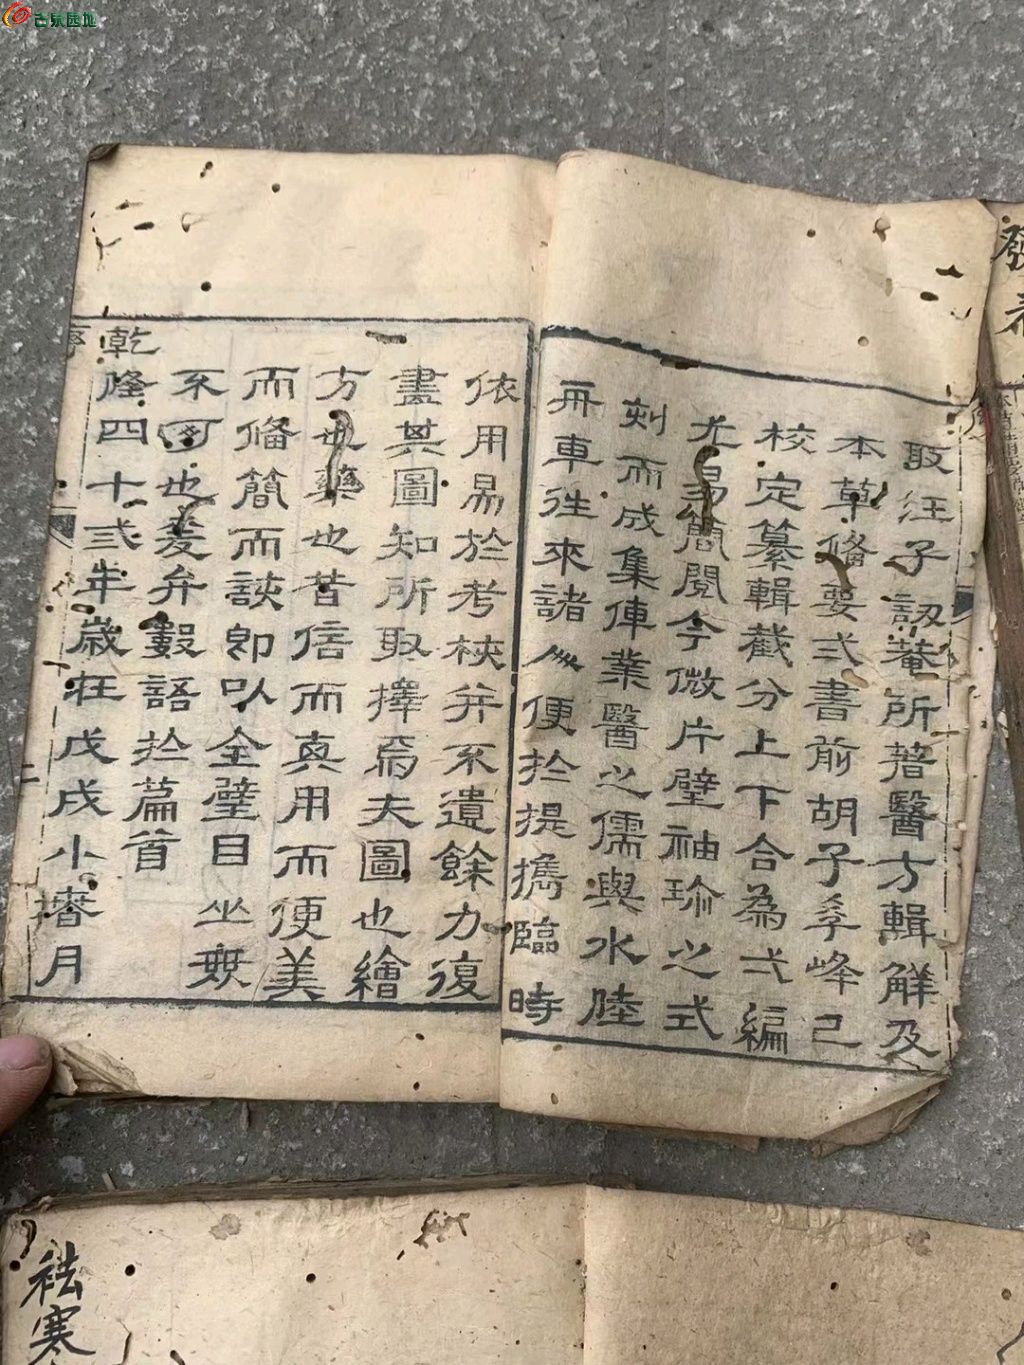 取汪子訒菴所著醫方輯解及
本草備要弍書前胡子季峰已
校定纂輯截分上下合為弌編
尤易簡閱今微片壁袖珍之式
刻而成集俾業醫之儒與水陸
舟車往來諸人便於提攜臨時
依用易於考挾并不遺餘力復
盡其圖知所取擇焉夫圖也繪
方也藥也昔信而真用而便美
而偹簡而該即以全璧目之無
不可也爰弁數語於篇首
乾隆四十弍年歲在戊戌小
月
序
二
祛寒
發
古泉园地